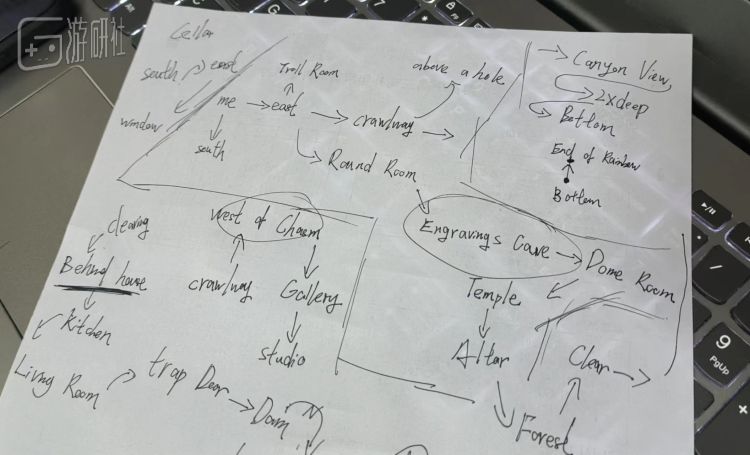 游研社
Cellar
south east
window
me east crawlway
south
Troll Room
above a hole
Round Room
Canyon View
2xdeep
Bottom
End of Rainbow
Bottom
clearing
Behind house
Kitchen
Living Room
trap Door
Dam
West of Chasm
crawlway Gallery
studio
Engravings Cave Dome Room
Temple
Altar
Forest
Clear
9
PgUp